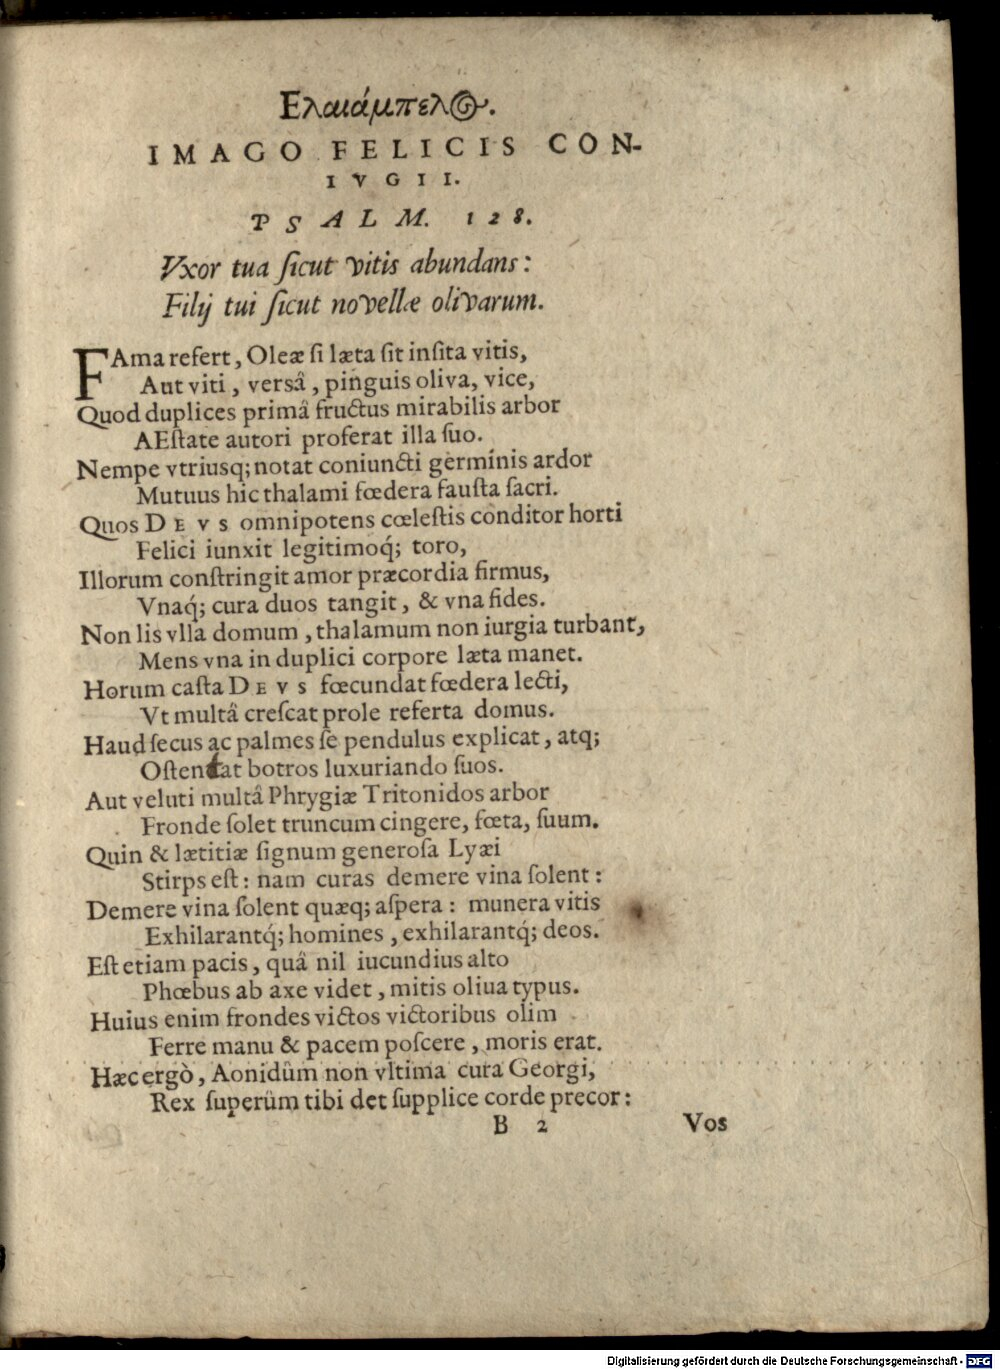 Ελαιάμπελος.
IMAGO FELICIS CON-
IVGII.
PSALM. 128.
Vxor tua ſicut vitis abundans:
Filij tui ſicut novellæ olivarum.
FAma refert, Oleæ ſi læta ſit inſita vitis,
Aut viti, versâ, pinguis oliva, vice,
Quod duplices primâ fructus mirabilis arbor
AEſtate autori proferat illa ſuo.
Nempe vtriusq; notat coniuncti germinis ardor
Mutuus hic thalami fœdera fauſta ſacri.
Quos DEVS omnipotens cœleſtis conditor horti
Felici iunxit legitimoq́; toro,
Illorum conſtringit amor præcordia firmus,
Vnaq́; cura duos tangit, & vna fides.
Non lis vlla domum, thalamum non iurgia turbant,
Mens vna in duplici corpore læta manet.
Horum caſta DEVS fœcundat fœdera lecti,
Vt multâ creſcat prole referta domus.
Haud ſecus ac palmes ſe pendulus explicat, atq;
Oſtentat botros luxuriando ſuos.
Aut veluti multâ Phrygiæ Tritonidos arbor
Fronde ſolet truncum cingere, fœta, ſuum.
Quin & lætitiæ ſignum generoſa Lyæi
Stirps eſt: nam curas demere vina ſolent:
Demere vina ſolent quæq; aſpera: munera vitis
Exhilarantq́; homines, exhilarantq́; deos.
Eſt etiam pacis, quâ nil iucundius alto
Phœbus ab axe videt, mitis oliua typus.
Huius enim frondes victos victoribus olim
Ferre manu & pacem poſcere, moris erat.
Hæc ergò, Aonidûm non vltima cura Georgi,
Rex ſuperûm tibi det ſupplice corde precor:
B 2 Vos
Digitalisierung gefördert durch die Deutsche Forschungsgemeinschaft - DFG